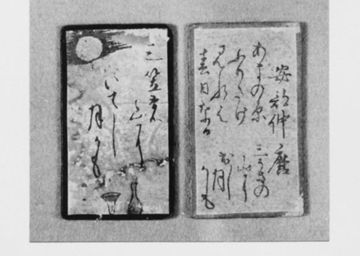 三笠の
山に
いてし
月かも
安部仲麿
あまの原
ふりさけ
見れは
春日なる
三かさの
山に
出し
月
かも